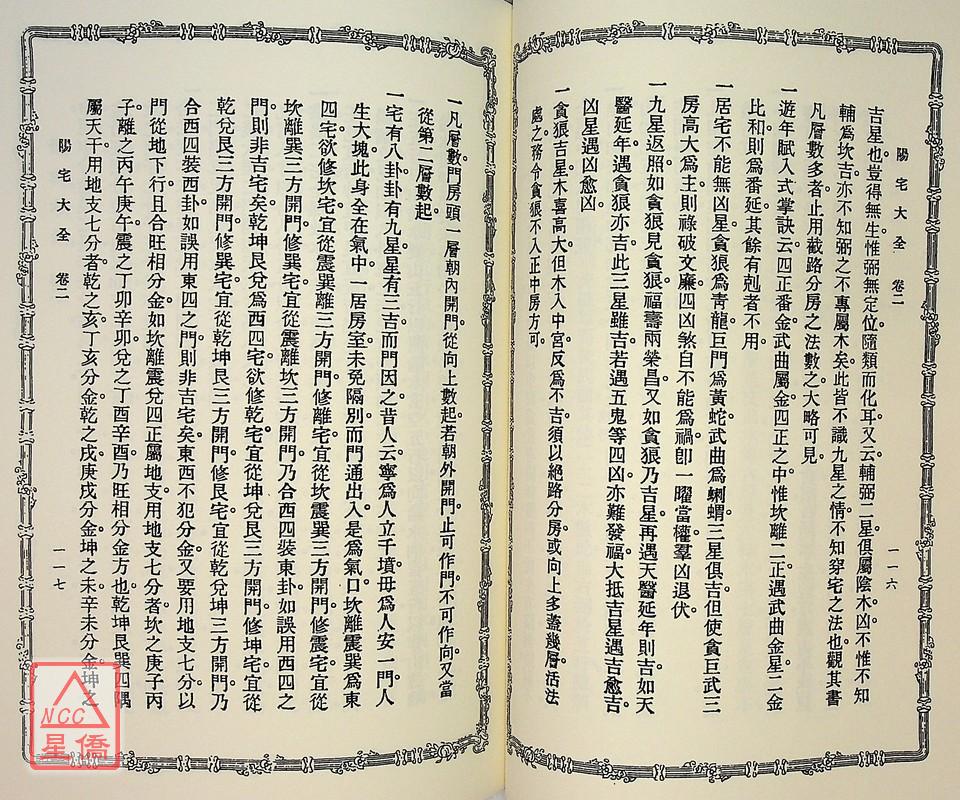 陽宅大全　卷二
一一六
吉星也。豈得無生。惟弼無定位。隨類而化耳。又云輔弼二星。俱屬陰木。凶不惟不知
輔爲坎吉。亦不知弼之不專屬木矣。此皆不識九星之情。不知穿宅之法也。觀其書
凡層數多者。止用截路分房之法數之。大略可見。
一遊年賦入式掌訣云。四正番金。武曲屬金。四正之中。惟坎離二正。遇武曲金星。二金
比和。則爲番延。其餘有剋者不用。
一居宅不能無凶星。貪狼爲靑龍。巨門爲黃蛇。武曲爲蝲蝟。三星俱吉。但使貪巨武三
房高大爲主。則祿破文廉四凶煞。自不能爲禍。卽一曜當權。羣凶退伏。
一九星返照。如貪狼見貪狼。福壽兩榮昌。又如貪狼。乃吉星。再遇天醫延年則吉。如天
醫延年。遇貪狼亦吉。此三星雖吉。若遇五鬼等四凶。亦難發福。大抵吉星遇吉愈吉。
凶星遇凶愈凶。
一貪狼吉星木喜高大。但木入中宮。反爲不吉。須以絕路分房。或向上多蓋幾層。活法
處之。務令貪狼不入正中房方可。
一凡層數門房頭一層朝內開門。從向上數起。若朝外開門。止可作門。不可作向。又當
從第二層數起。
一宅有八卦。卦有九星。星有三吉。而門因之。昔人云。寧爲人立千墳。毋爲人安一門。人
生大塊。此身全在氣中。一居房室。未免隔別。而門通出入。是爲氣口。坎離震巽爲東
四宅。欲修坎宅。宜從震巽離三方開門。修離宅。宜從坎震巽三方開門。修震宅。宜從
坎離巽三方開門。修巽宅。宜從震離坎三方開門。乃合西四裝東卦。如誤用西四之
門。則非吉宅矣。乾坤艮兌爲西四宅。欲修乾宅。宜從坤兌艮三方開門。修坤宅。宜從
乾兌艮三方開門。修巽宅。宜從乾坤艮三方開門。修艮宅。宜從乾兌坤三方開門。乃
合西四裝西卦。如誤用東四之門。則非吉宅矣。東西不犯分金。又要用地支七分。以
門從地下行。且合旺相分金。如坎離震兌四正屬地支。用地支七分者。坎之庚子丙
子。離之丙午庚午。震之丁卯辛卯。兌之丁酉辛酉。乃旺相分金方也。乾坤艮巽四隅
屬天干。用地支七分者。乾之亥。丁亥分金。乾之戌。庚戌分金。坤之未。辛未分金。坤之
陽宅大全　卷二
一一七
NCC
星僑